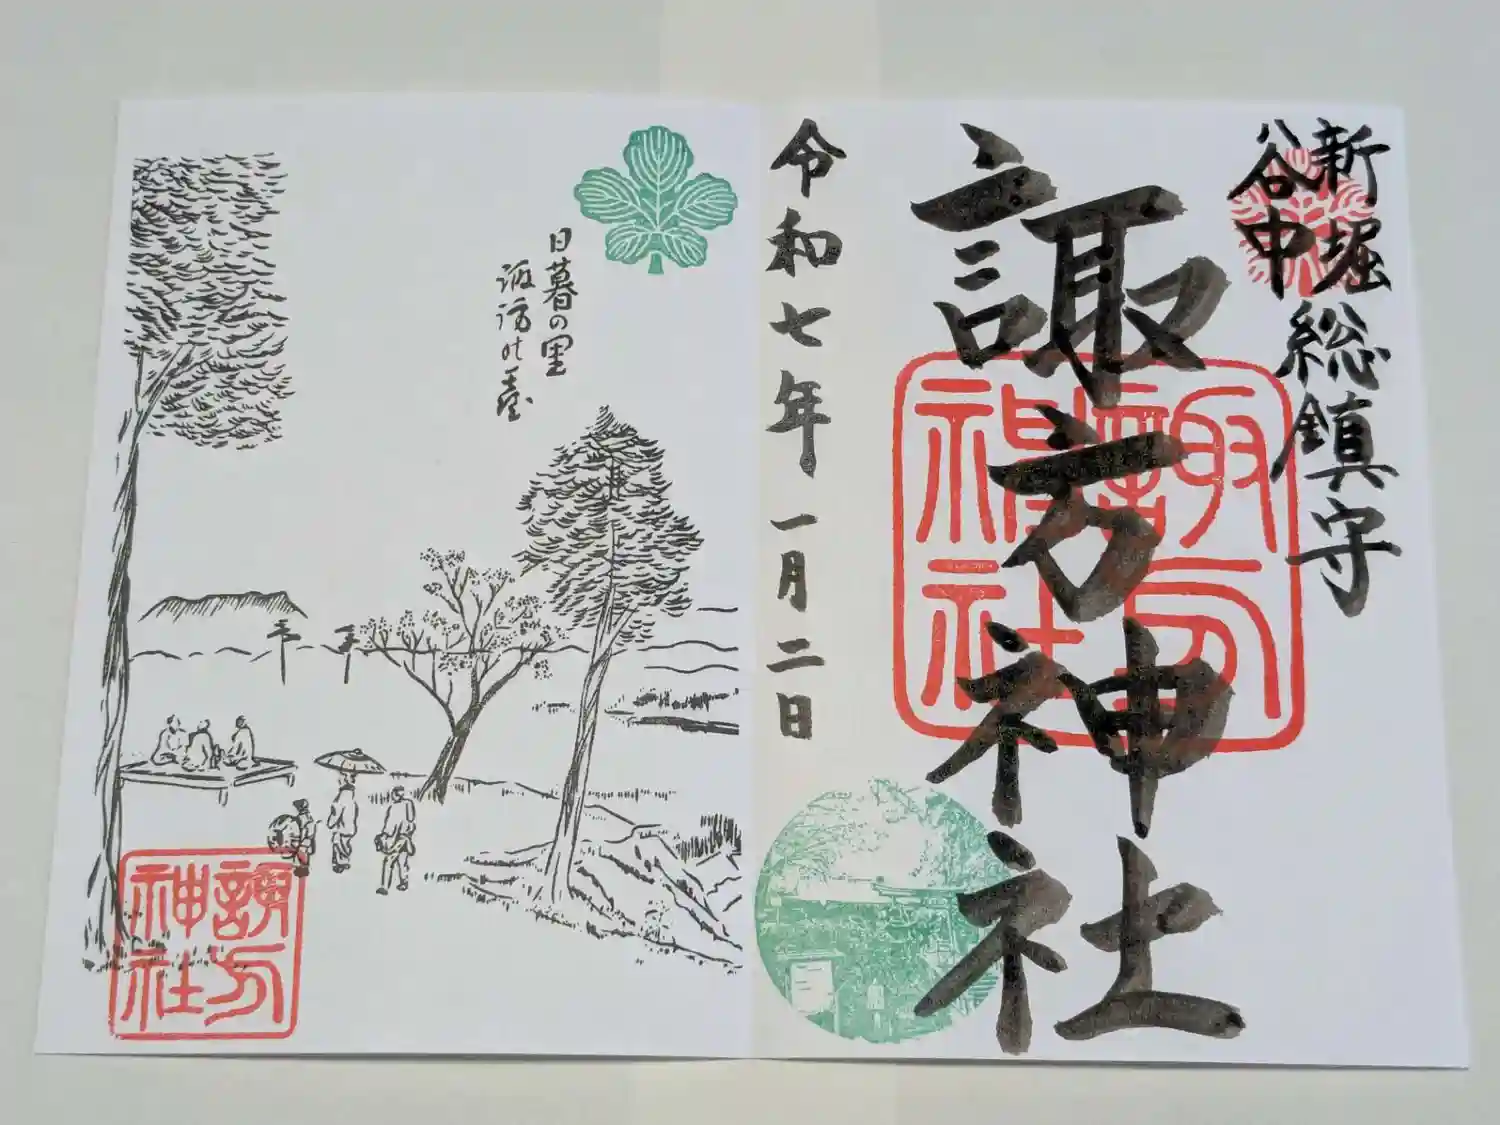 新堀
谷中
総鎮守
諏方神社
諏方
神社
令和七年一月二日
日暮の里
諏訪の臺
諏方
神社